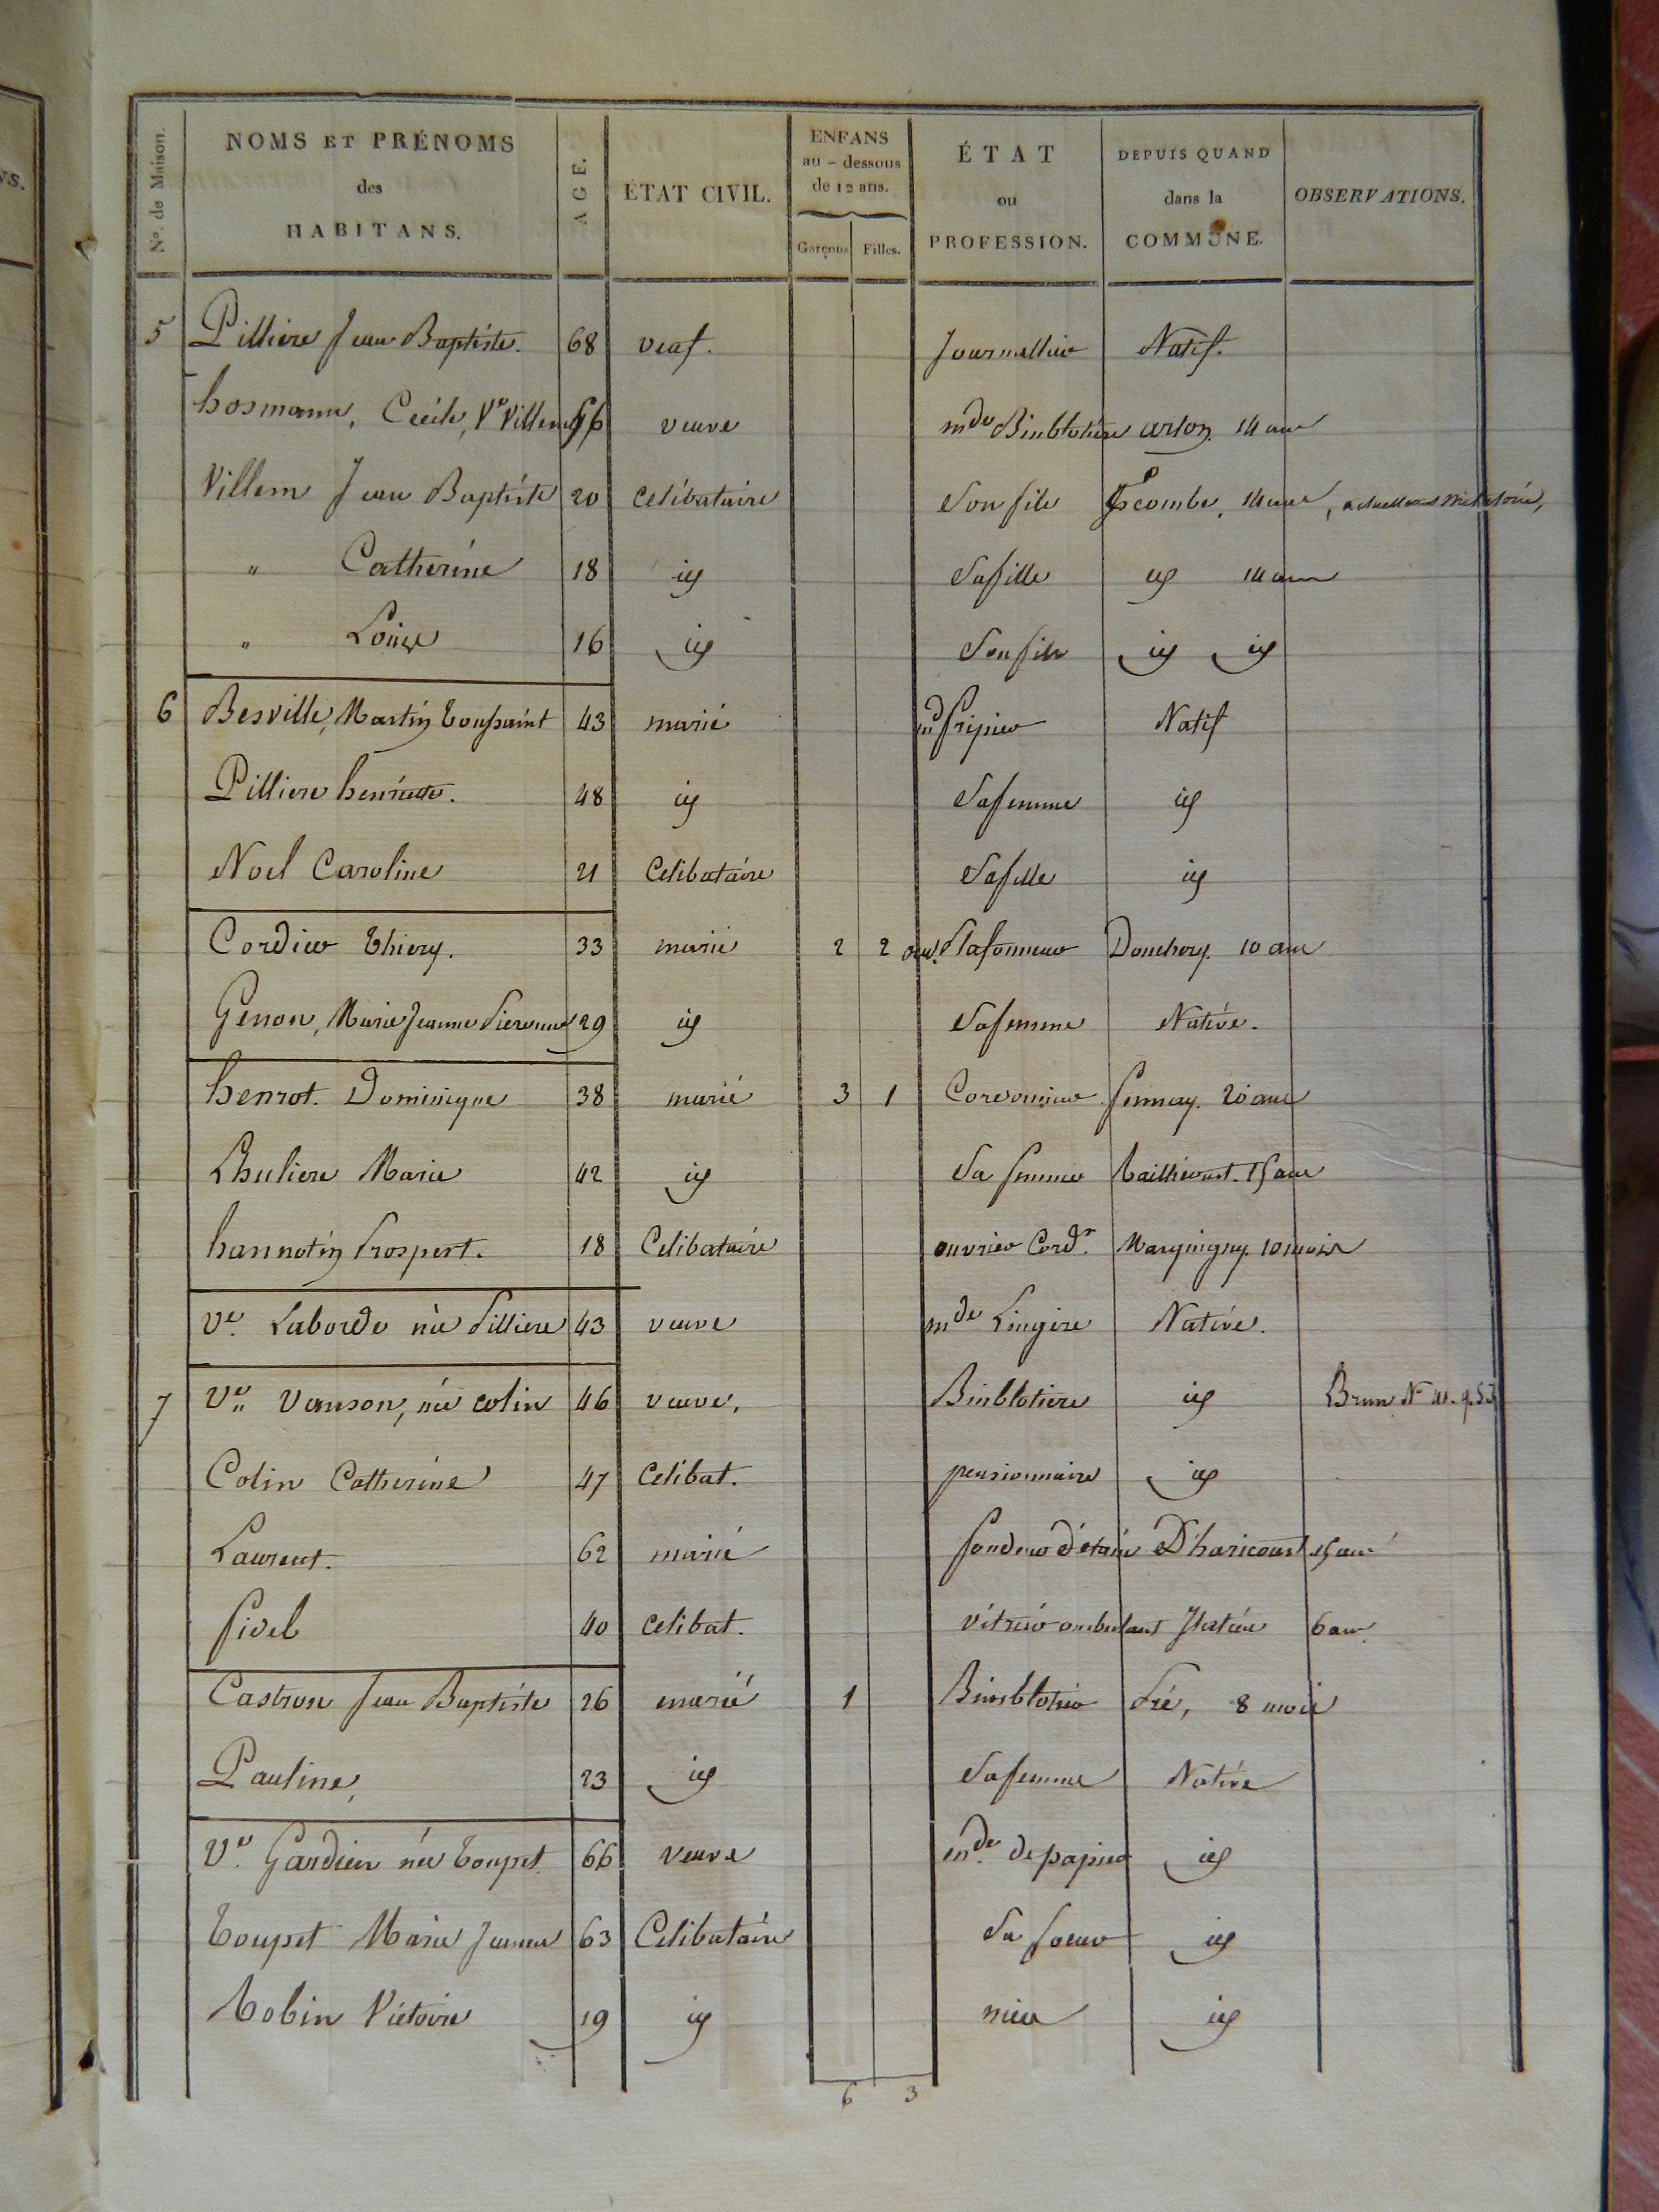 VS.
N°. de Maison. NOMS ET PRÉNOMS des HABITANS. AGE. ÉTAT CIVIL. ENFANS au-dessous de 12 ans. Garçons Filles. ÉTAT ou PROFESSION. DEPUIS QUAND dans la COMMUNE. OBSERVATIONS.
5 Pilliere Jean Baptiste. 68 veuf. Journallier Natif.
hosmann, Cecile, Ve Villem 56 veuve mde Binblotiere arlon. 14 ans
Villem Jean Baptiste 20 celibataire Son fils 14 ans,
" Catherine 18 id Sa fille id 14 ans
" Louis 16 id Son fils id id
6 Besville, Martin Toussaint 43 marié md fripier Natif
Pilliere henriette. 48 id Sa femme id
Noel Caroline 21 Celibataire Sa fille id
Cordier Thiery. 33 marié 2 2 ouv. Plafonneur Donchery. 10 ans
Genon, Marie Jeanne Pieronne 29 id Sa femme Native.
henrot. Dominique 38 marié 3 1 Cordonnier fumay. 20 ans
Lhuliere Marie 42 id Sa femme 15 ans
hannotin Prospert. 18 Celibataire ouvrier Cordr. Margnigny. 10 mois
Ve. Laborde née Pilliere 43 veuve mde Lingère Native.
7 Ve. Vanson, née colin 46 veuve, Binblotiere id Brun N°
Colin Catherine 47 Celibat. pensionnaire id
Laurent. 62 marié fondeur d'étain D'haricourt 15 ans
fidel 40 celibat. vitrier ambulant Italien 6 ans.
Castron Jean Baptiste 26 marié 1 Binblotier 8 mois
Pauline, 23 id Sa femme Native
Ve. Gardien née Toupet 66 veuve mde. de papier id
Toupet Marie Jeanne 63 Celibataire Sa soeur id
Tobin Victoire 19 id niece id
6 3